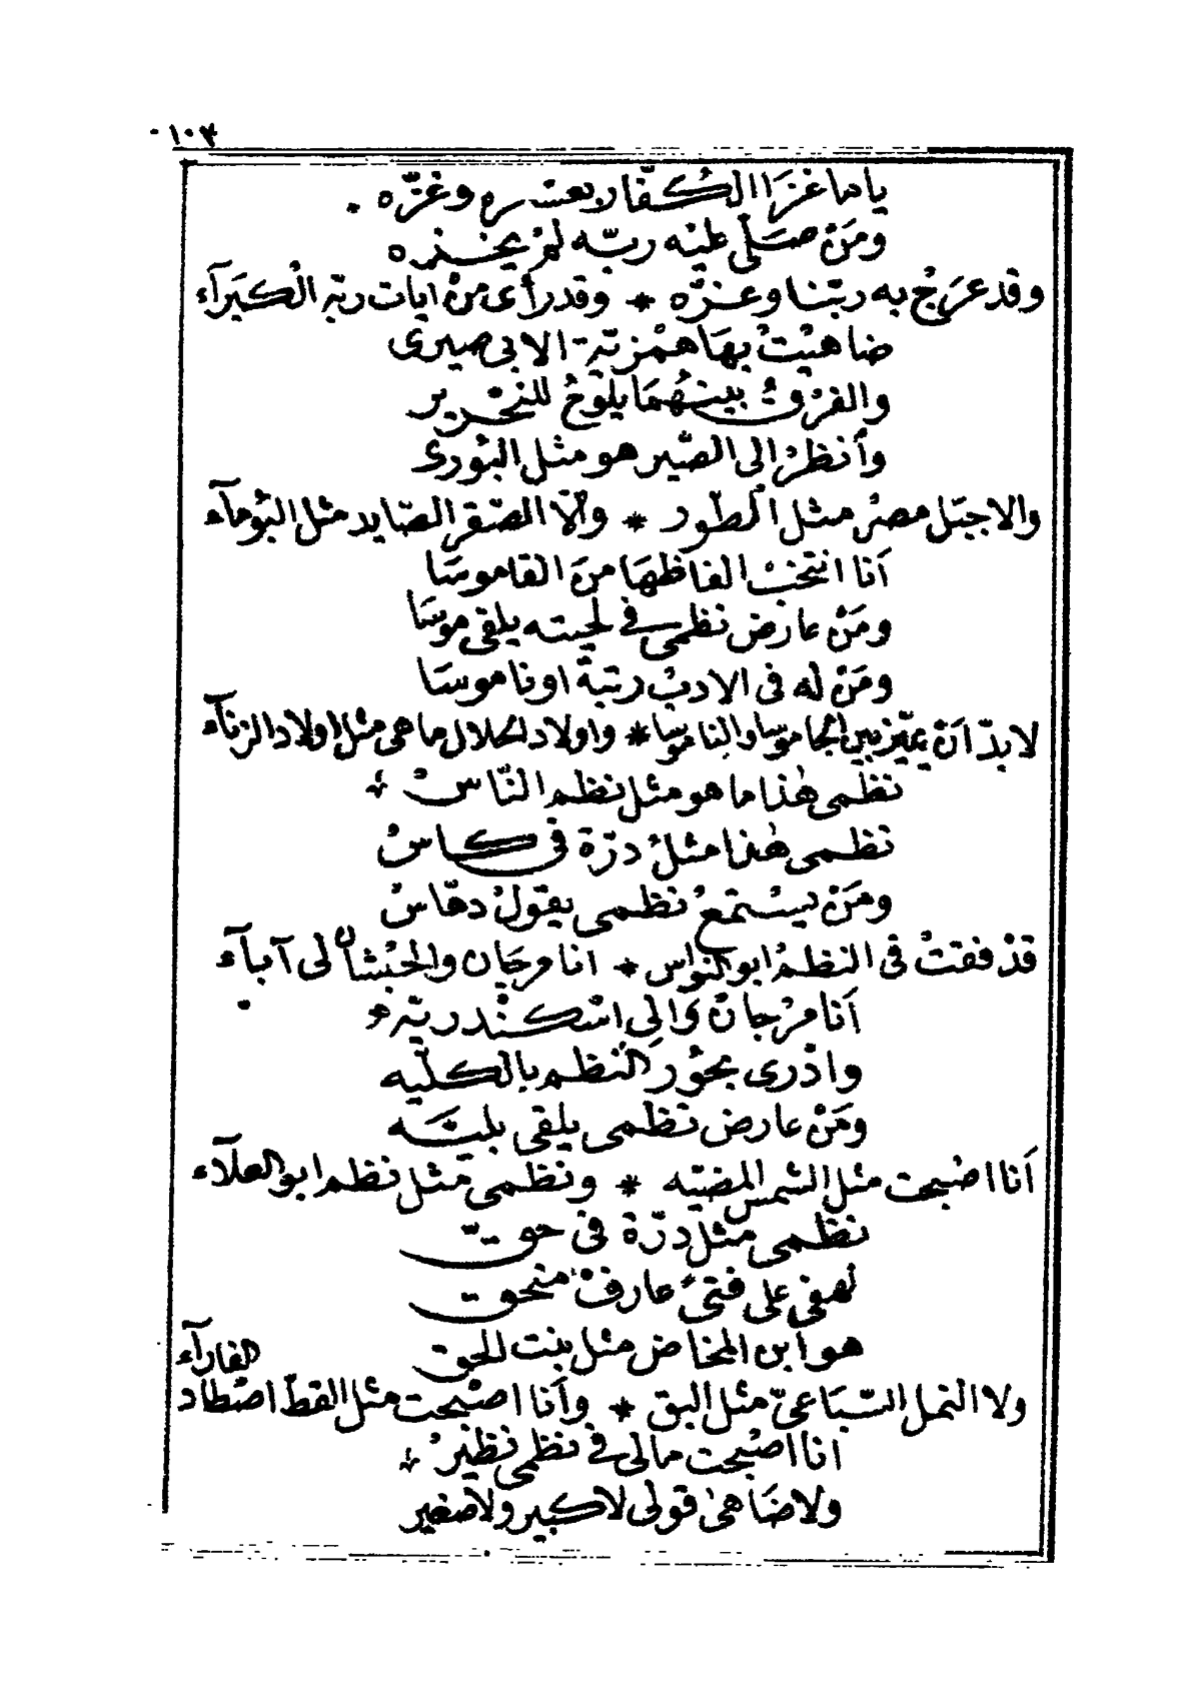 ١٠٣
ياما غزا الكفار بعسره وغزّه
ومَنْ صلّى عليْه ربّه لمْ يخنره
وقد عرجْ به ربّنا وعزّه * وقد رأى منْ ايات ربّه الكَبَرآء
ضاهيْتْ بهَا همْزيّة الابي صيرى
والفرْقْ بينهُمَا يلُوحُ للنحْرير
وأنظرْ الى الصّير هو مثل البُورى
والاجبّل مصرْ مثل الطّور * والّا الصّقر الصّايد مثل البُومآء
أنا انتخبْ الفاظهَا منَ القاموسَا
ومَنْ عارض نظمى فى لحيته يلقى موسَا
ومَنْ له فى الادبْ رتبة اوناموسَا
لا بدّ انْ يميّز بين الجاموسا والناموسا * واولاد الحلال ما هى مثل اولاد الزنآء
نظمى هٰذا ما هو مثل نظم النّاسْ
نظمى هٰذا مثلْ درّة فى كاسْ
ومَنْ يسْتمعْ نظمى يقولْ دهّاسْ
قدْ فقتْ فى النظمْ ابو النواس * انا مرجان والحبْشان لى آمبآء
أنا مرْجانْ وَالى اسْكنْدريّة
وادْرى بحوْر النظم بالكليّه
ومَنْ عارض نظمى يلقى بليّه
أنا اصْبحت مثل الشمس المضيّه * ونظمى مثل نظم ابو العلآء
نظمى مثل درّة فى حقّ
لهفى على فتىً عارفْ منحق
هو ابن المخاض مثل بنت للحق
ولا النمل السّباعىّ مثل البق * وأنا اصْبحت مثل القطّ اصْطاد الفارآء
انا اصْبحت مالى فى نظمى نظيرْ
ولا ضَاهىٰ قولى لا كبير ولا صغير